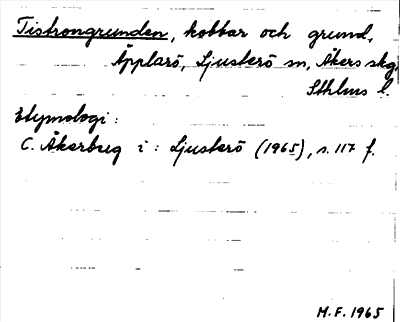 Tistrongrunden, kobbar och grund,
Äpplarö, Ljusterö sn, Åkers skg,
Sthlms l.
Etymologi :
C. Åkerberg i : Ljusterö (1965), s. 117 f.
M.F. 1965